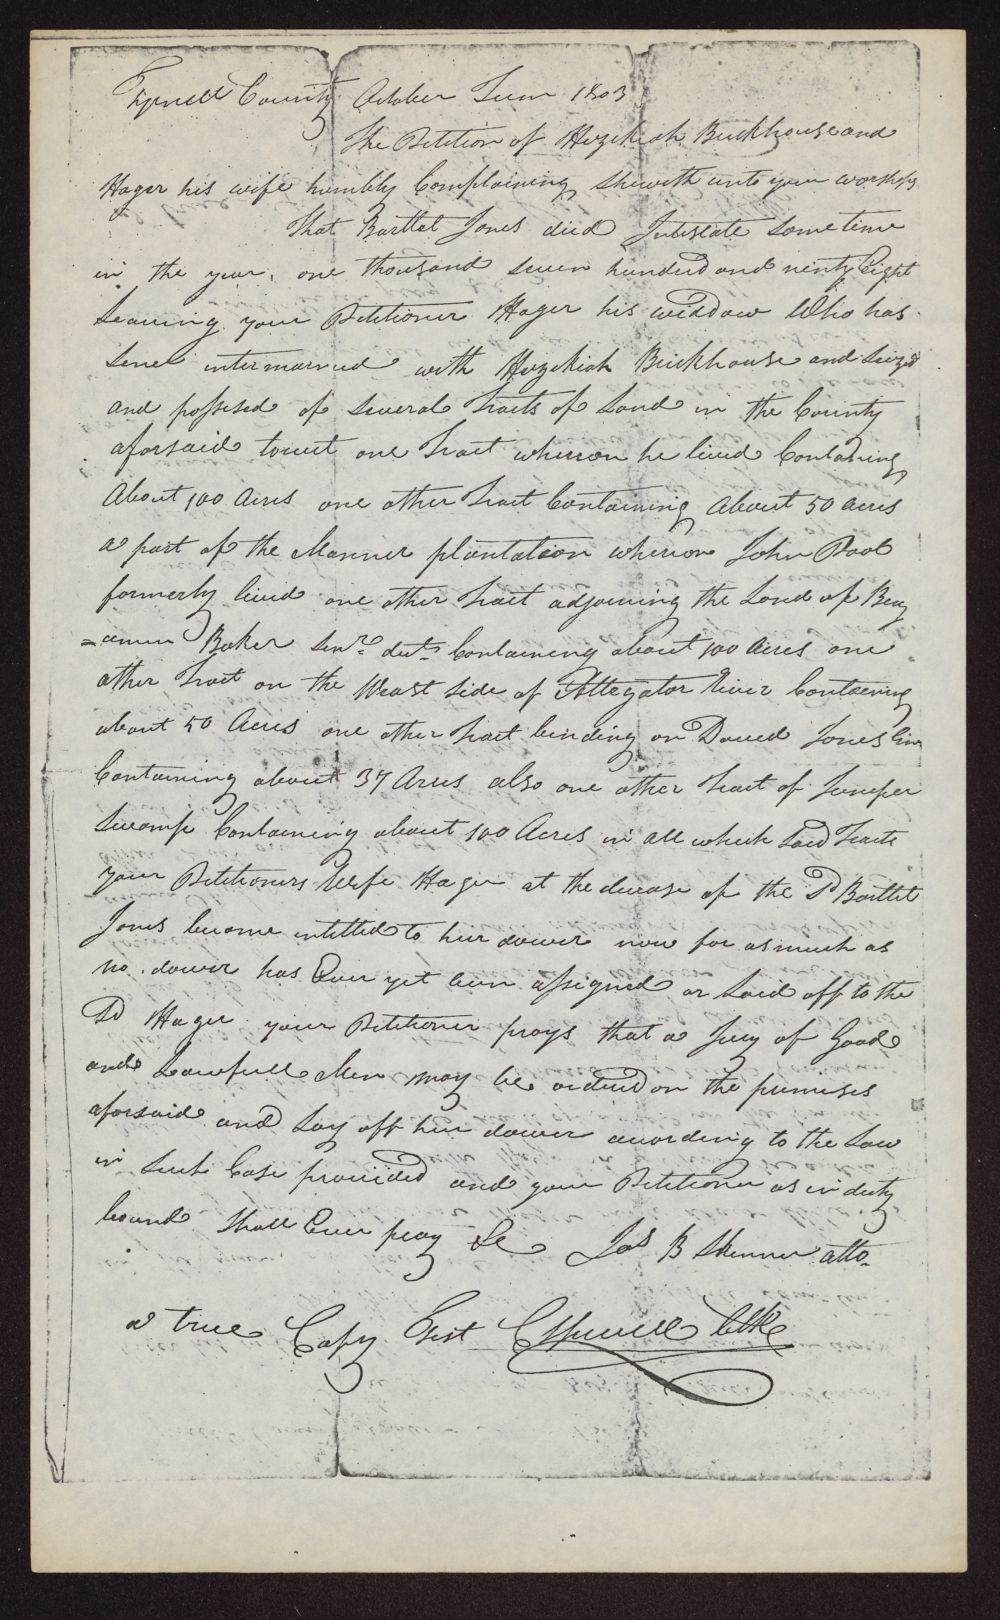 Tyrrell County October Term 1803
The Petition of Hezekiah Buckhouse and
Hager his wife humbly Complaining Sheweth unto your worships
That Barttet Jones died Intestate Sometime
in the year, one thousand Seven hundred and ninty Eight
Leaving your Petitioner Hager his widdow Who has
Sene intermarried with Hezekiah Buckhouse and Seized
and possesed of Several Tracts of Land in the County
aforsaid towit one Tract wheron he lived Containing
About 100 Acres one other Tract Containing About 50 acres
a part of the Manner plantation wheron John Pool
formerly lived one other Tract adjoining the Land of Benj
=amin Baker Senr. dect. Containing about 100 Acres one
other Tract on the Weast Side of Allegator River Containing
about 50 Acres one other Tract binding on David Jones line
Containing about 37 Acres also one other Tract of Juniper
Swamp Containing about 100 Acres in all which Said Tracts
your Petitioners Wife Hager at the decease of the Sd Barttet
Jones became intitled to her dower now for as much as
no dower has Ever yet been assigned or Laid off to the
Sd Hager your Petitioner prays that a Jury of Good
and Lawfull Men may be ordred on the premises
aforsaid and Lay off her dower according to the Law
in Such Case provided and your Petitioner as in duty
bound Shall Ever pray &c Jas B Skinner atto.
a true Copy Test Clk